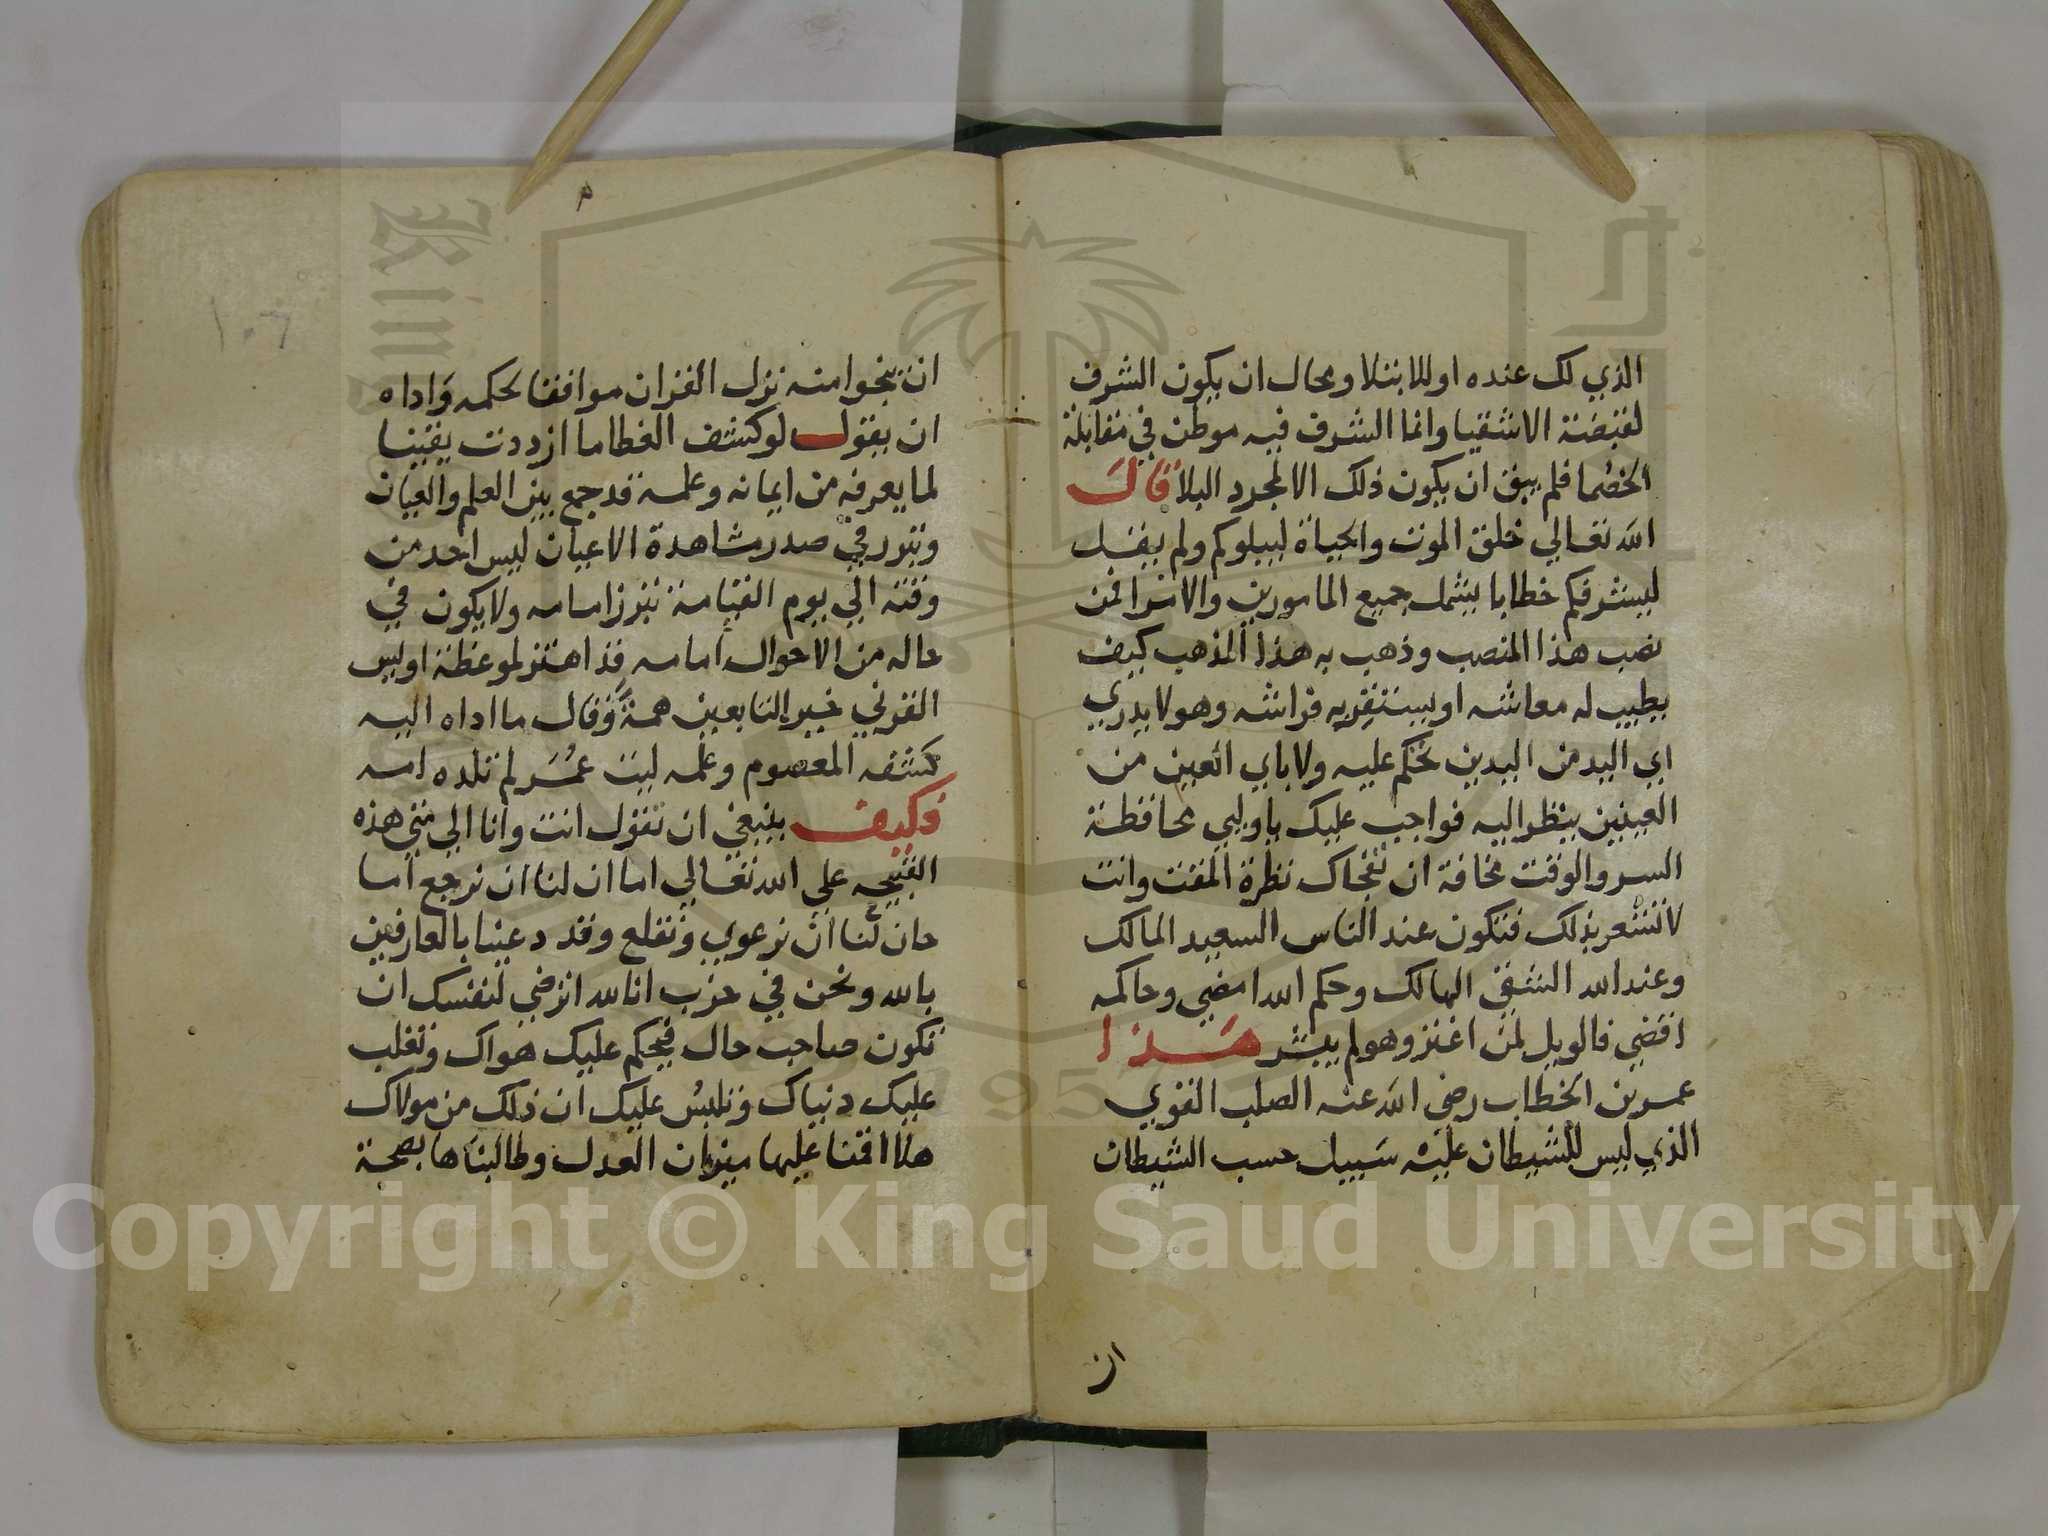 الذي لك عنده او للابتلا ومحال ان يكون الشرف
لقبضة الاشقيا وانما الشرف فيه موطن في مقابلة
الخصما فلم يبق ان يكون ذلك الا لمجرد البلا قال
الله تعالي خلق الموت والحياة ليبلوكم ولم يقل
ليشرفكم خطابا يشمل جميع المامورين والامرا فمن
نصب هذا المنصب وذهب به هذا المذهب كيف
يطيب له معاشه او يستقر به فراشه وهو لا يدري
اي اليد من اليدين تحكم عليه ولا باي العين من
العينين ينظر اليه فواجب عليك ياوليي محافظة
السر والوقت مخافة ان تفجاك نظرة المقت وانت
لا تشعر بذلك فتكون عند الناس السعيد المالك
وعند الله الشقي الهالك وحكم الله امضي وحاكمه
اقضي فالويل لمن اغتر وهو لم يبشر هذا
عمر بن الخطاب رضي الله عنه الصلب القوي
الذي ليس للشيطان عليه سبيل حسب الشيطان
ان
م
١٠٦
ان ينجوا منه نزل القران موافقا لحكمه واداه
ان يقول لو كشف الغطا ما ازددت يقينا
لما يعرفه من ايمانه وعلمه قد جمع بين العلم والعيان
وبرر في صدر مشاهدة الاعيان ليس احد من
وقته الي يوم القيامة تبرز امامه ولا يكون في
حاله من الاحوال امامه قد اهتز لموعظة اويس
القرني خير التابعين همة وقال ما اداه اليه
كشفه المعصوم وعلمه ليت عمر لم تلده امه
فكيف ينبغي ان تقول انت وانا الي متي هذه
القبيحه علي الله تعالي اما ان لنا ان نرجع اما
حان لنا ان نرعوي ونقلع وقد دعينا بالعارفين
بالله ونحن في حزب انا لله اترضي لنفسك ان
تكون صاحب حال فيحكم عليك هواك وتغلب
عليك دنياك وتلبس عليك ان ذلك من مولاك
هلا اقمنا عليها ميزان العدل وطالبناها بصحة
Copyright © King Saud University
1957